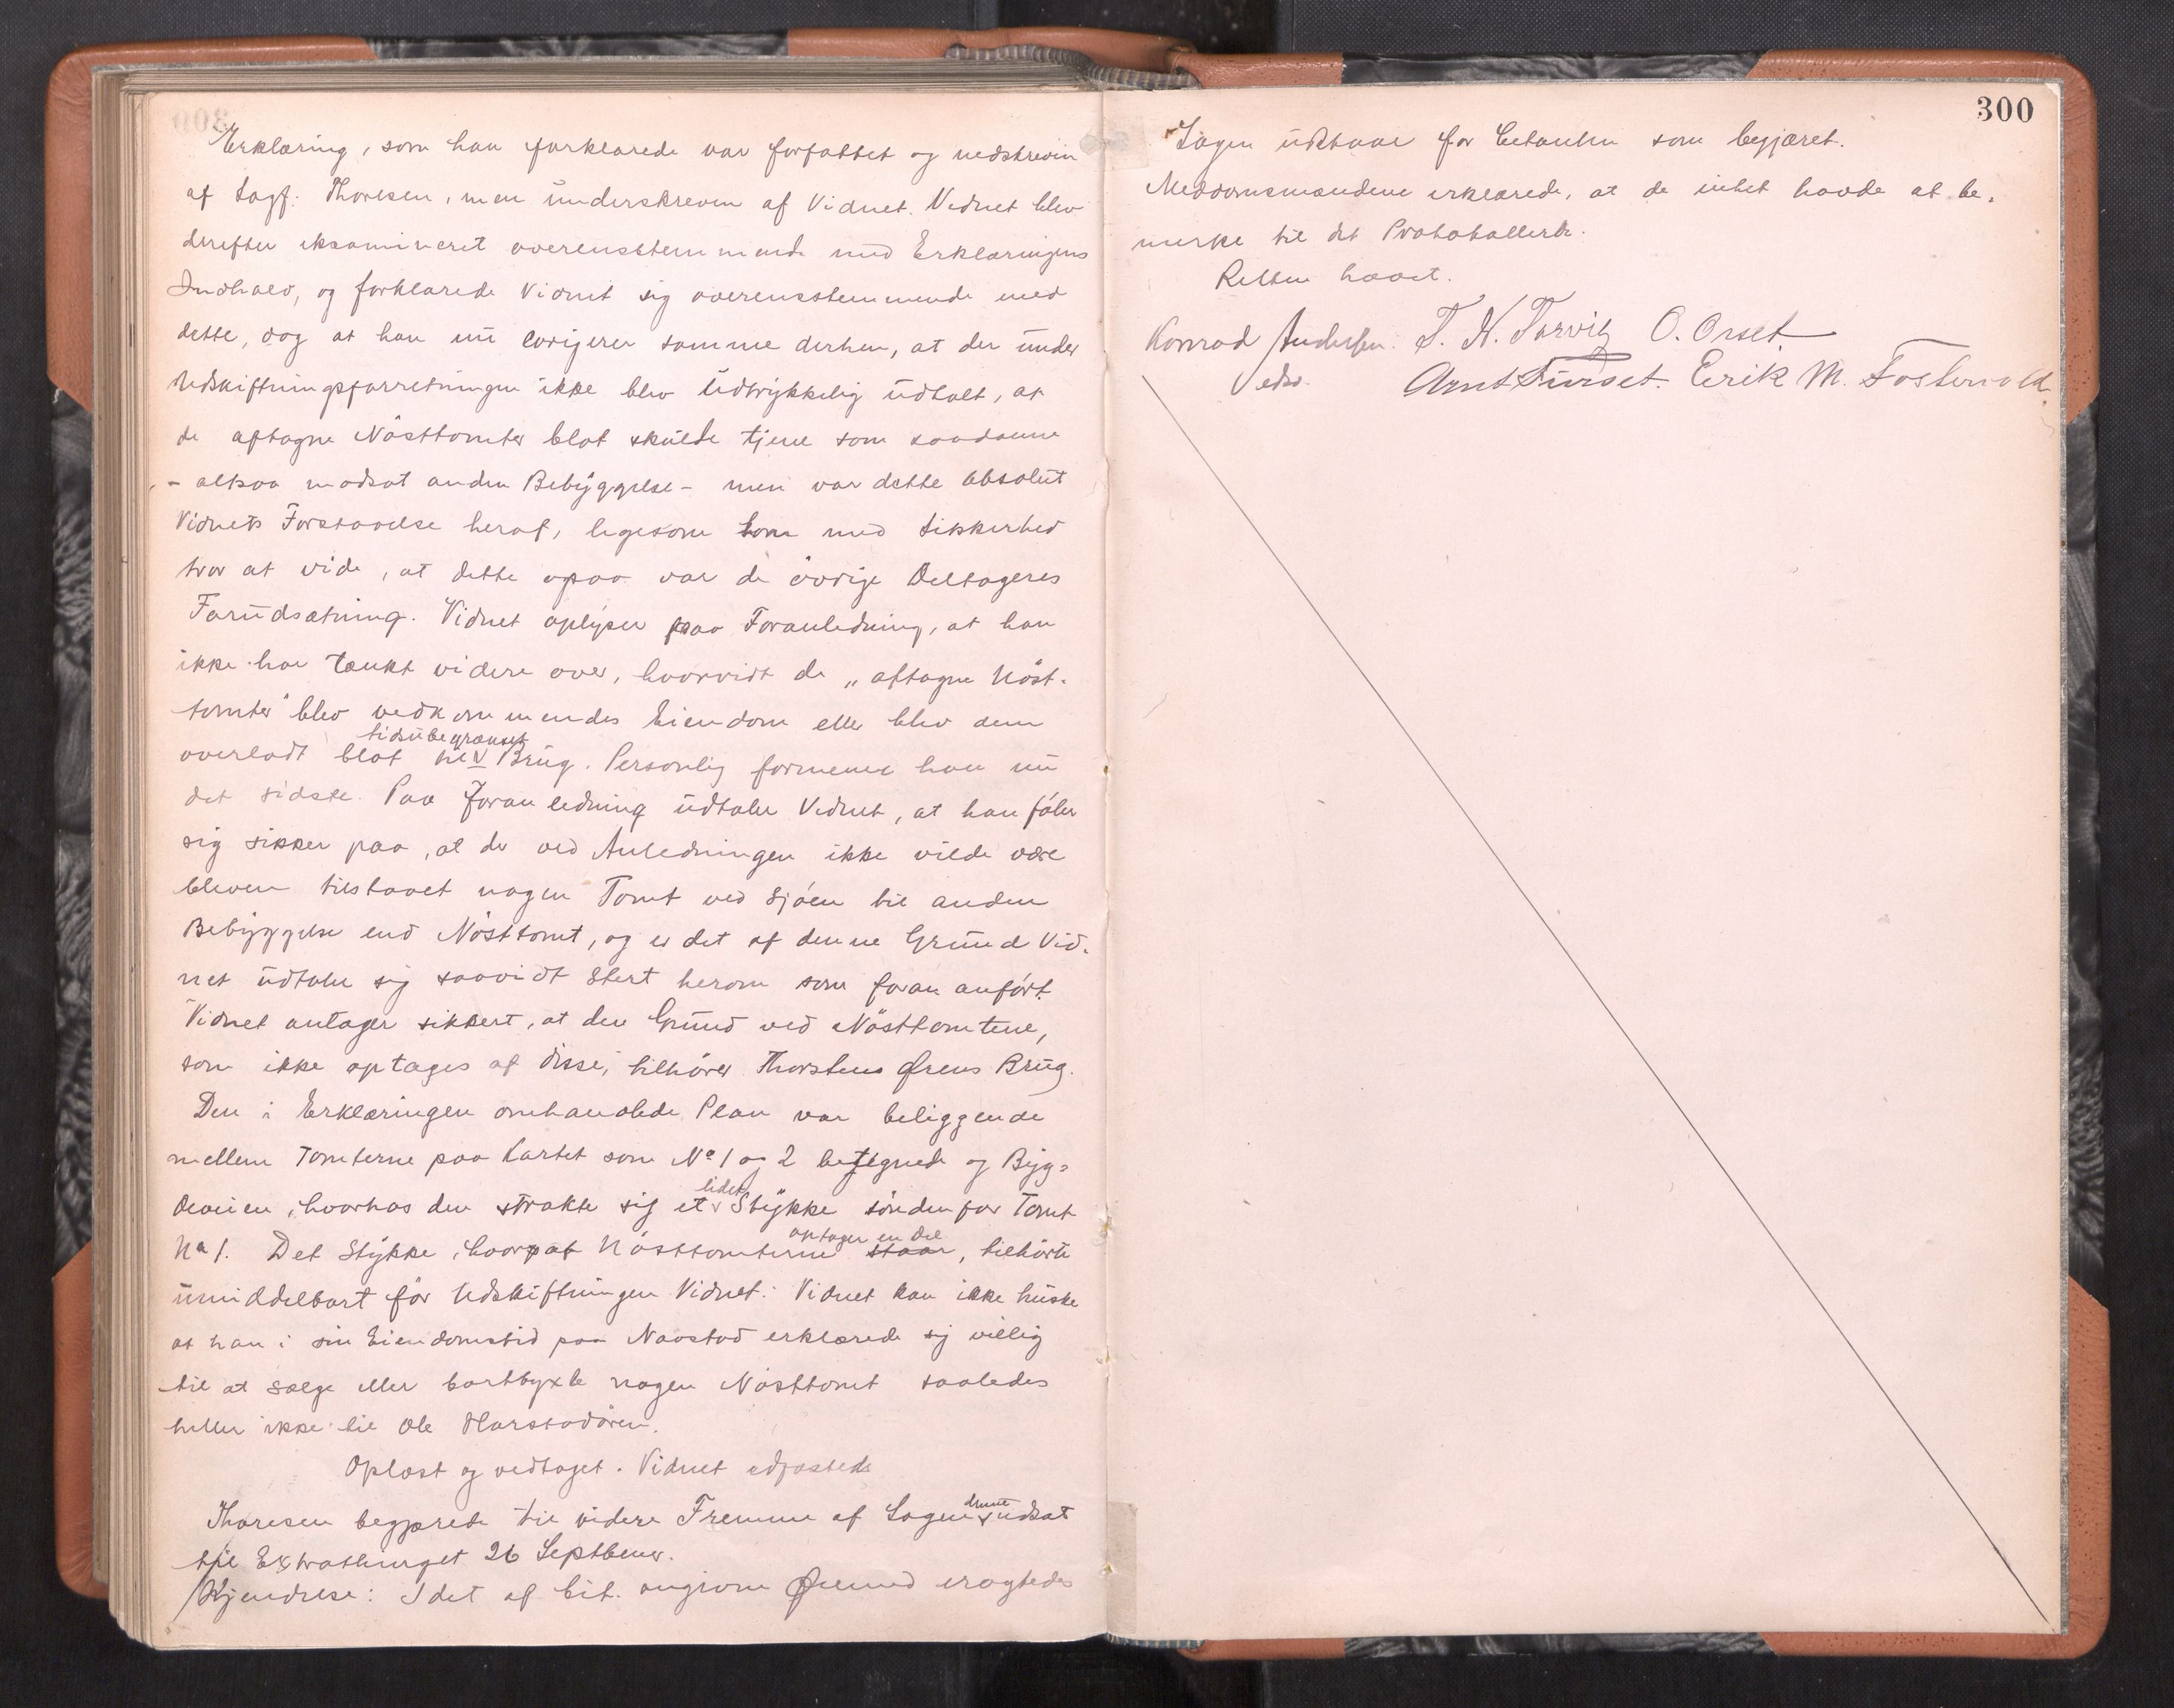 Erklæring, som han forklarede var forfattet og nedskreven
af Sagf. Thoresen, men underskreven af Vidnet. Vidnet blev
derefter eksamineret overensstemmende med Erklæringens
Indhold, og forklarede Vidnet sig overensstemmende med
dette, dog at han nu corigerer samme derhen, at der under
Udskiftningsforretningen ikke blev udtrykkelig udtalt, at
de aftagne Nösttomter blot skulde tjene som saadanne
- altsaa modsat anden Bebyggelse - men var dette absolut
Vidnets Forstaaelse heraf, ligesom han med Sikkerhed
tror at vide, at dette ogsaa var de övrige Deltageres
Forudsætning. Vidnet oplyser paa Foranledning, at han
ikke har tænkt videre over, hvorvidt de „aftagne Nöst-
tomter" blev vedkommendes Eiendom eller blev dem
overladt blot til tidsubegrænset Brug. Personlig formener han nu
det sidste. Paa Foranledning udtaler Vidnet, at han föler
sig sikker paa, at der ved Anledningen ikke vilde være
bleven tilstaaet nogen Tomt ved Sjöen til anden
Bebyggelse end Nösttomt, og er det af denne Grund Vid-
net udtaler sig saavidt sterkt herom som foran anfört.
Vidnet antager sikkert, at den Grund ved Nösttomtene,
som ikke optages af disse, tilhörer Thorstens Ørens Brug.
Den i Erklæringen omhandlede Plan var beliggende
mellem Tomterne paa Kartet som No 1 og 2 betegnede og Byg-
deveien, hvorhos den strakte sig et lidet Stykke sönden for Tomt
No 1. Det Stykke, hvoraf Nösttomterne optager en del, tilhörte
umiddelbart för Udskiftningen Vidnet. Vidnet kan ikke huske
at han i sin Eiendomstid paa Naastad erklærede sig villig
til at sælge eller bortbyxle nogen Nösttomt saaledes
heller ikke til Ole Harstadören.
Oplæst og vedtaget. Vidnet
Thoresen begjærede til videre Fremme af Sagen denne udsat
til Extrathinget 26 Septbener.
Kjendelse: I det af Cit. angivne Øiemed eragtedes
300
Sagen udstaar for Citanten som begjæret.
Meddomsmændene erklærede, at de intet havde at be-
merke til det Protokollerte.
Retten hævet.
Konrad Andersen. T. N. Tarvig O. Orset
Veds. Arnt Furset. Eerik M. Fostervold.